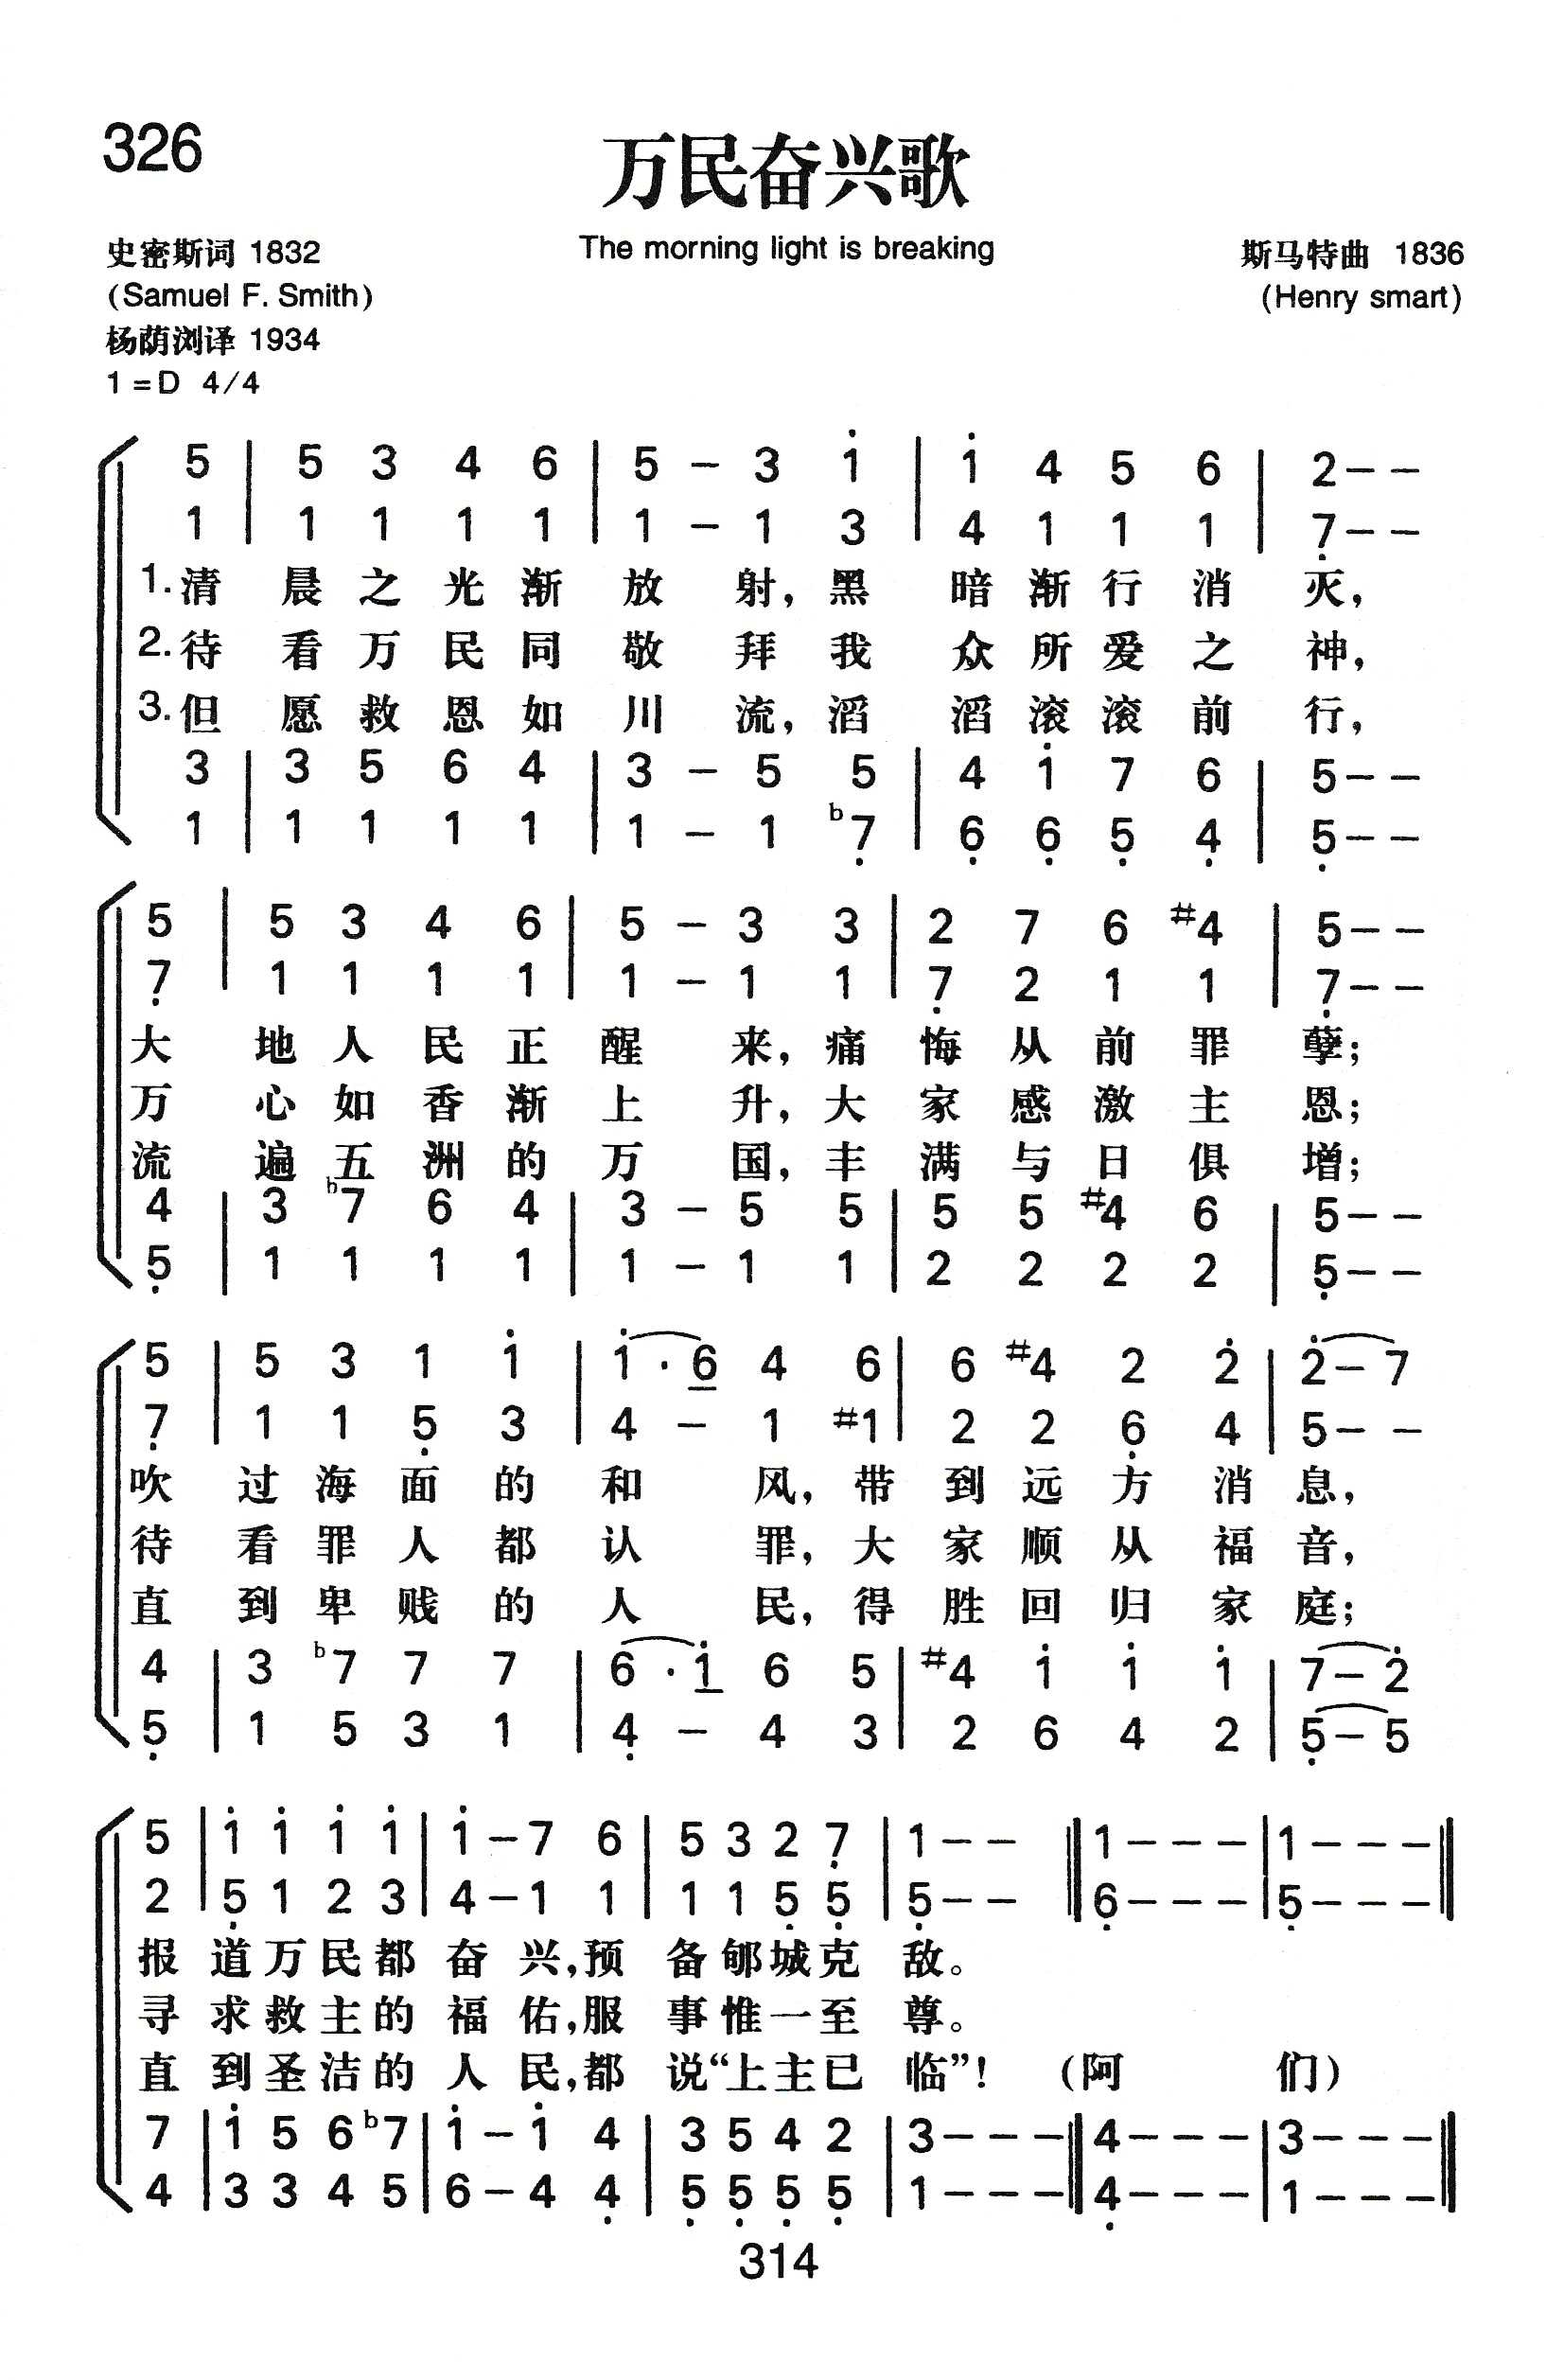 326
万民奋兴歌
史密斯词 1832
The morning light is breaking
斯马特曲 1836
(Samuel F. Smith)
(Henry smart)
杨荫浏译 1934
1=D 4/4
5 | 5 3 4 6 | 5 - 3 1̇ | 1̇ 4 5 6 | 2 - -
1 | 1 1 1 1 | 1 - 1 3 | 4 1 1 1 | 7̣ - -
1. 清 晨 之 光 渐 放 射, 黑 暗 渐 行 消 灭,
2. 待 看 万 民 同 敬 拜 我 众 所 爱 之 神,
3. 但 愿 救 恩 如 川 流, 滔 滔 滚 滚 前 行,
3 | 3 5 6 4 | 3 - 5 5 | 4 1̇ 7 6 | 5 - -
1 | 1 1 1 1 | 1 - 1 b7̣ | 6̣ 6̣ 5̣ 4̣ | 5̣ - -
5 | 5 3 4 6 | 5 - 3 3 | 2 7 6 #4 | 5 - -
7̣ | 1 1 1 1 | 1 - 1 1 | 7̣ 2 1 1 | 7̣ - -
大 地 人 民 正 醒 来, 痛 悔 从 前 罪 孽;
万 心 如 香 渐 上 升, 大 家 感 激 主 恩;
流 遍 五 洲 的 万 国, 丰 满 与 日 俱 增;
4 | 3 b7 6 4 | 3 - 5 5 | 5 5 #4 6 | 5 - -
5̣ | 1 1 1 1 | 1 - 1 1 | 2 2 2 2 | 5̣ - -
5 | 5 3 1 1̇ | 1̇ · 6 4 6 | 6 #4 2 2̇ | 2̇ - 7
7̣ | 1 1 5̣ 3 | 4 - 1 #1 | 2 2 6̣ 4 | 5 - -
吹 过 海 面 的 和 风, 带 到 远 方 消 息,
待 看 罪 人 都 认 罪, 大 家 顺 从 福 音,
直 到 卑 贱 的 人 民, 得 胜 回 归 家 庭;
4 | 3 b7 7 7 | 6 · 1̇ 6 5 | #4 1̇ 1̇ 1̇ | 7 - 2̇
5̣ | 1 5 3 1 | 4̣ - 4 3 | 2 6 4 2 | 5̣ - 5
5 | 1̇ 1̇ 1̇ 1̇ | 1̇ - 7 6 | 5 3 2 7̣ | 1 - - ‖ 1 - - - | 1 - - - ‖
2 | 5̣ 1 2 3 | 4 - 1 1 | 1 1 5̣ 5̣ | 5̣ - - ‖ 6̣ - - - | 5̣ - - - ‖
报 道 万 民 都 奋 兴, 预 备 郇 城 克 敌。
寻 求 救 主 的 福 佑, 服 事 惟 一 至 尊。
直 到 圣 洁 的 人 民, 都 说“上 主 已 临”! (阿 们)
7 | 1̇ 5 6 b7 | 1̇ - 1̇ 4 | 3 5 4 2 | 3 - - - ‖ 4 - - - | 3 - - - ‖
4 | 3 3 4 5 | 6 - 4 4̣ | 5̣ 5̣ 5̣ 5̣ | 1 - - - ‖ 4̣ - - - | 1 - - - ‖
314